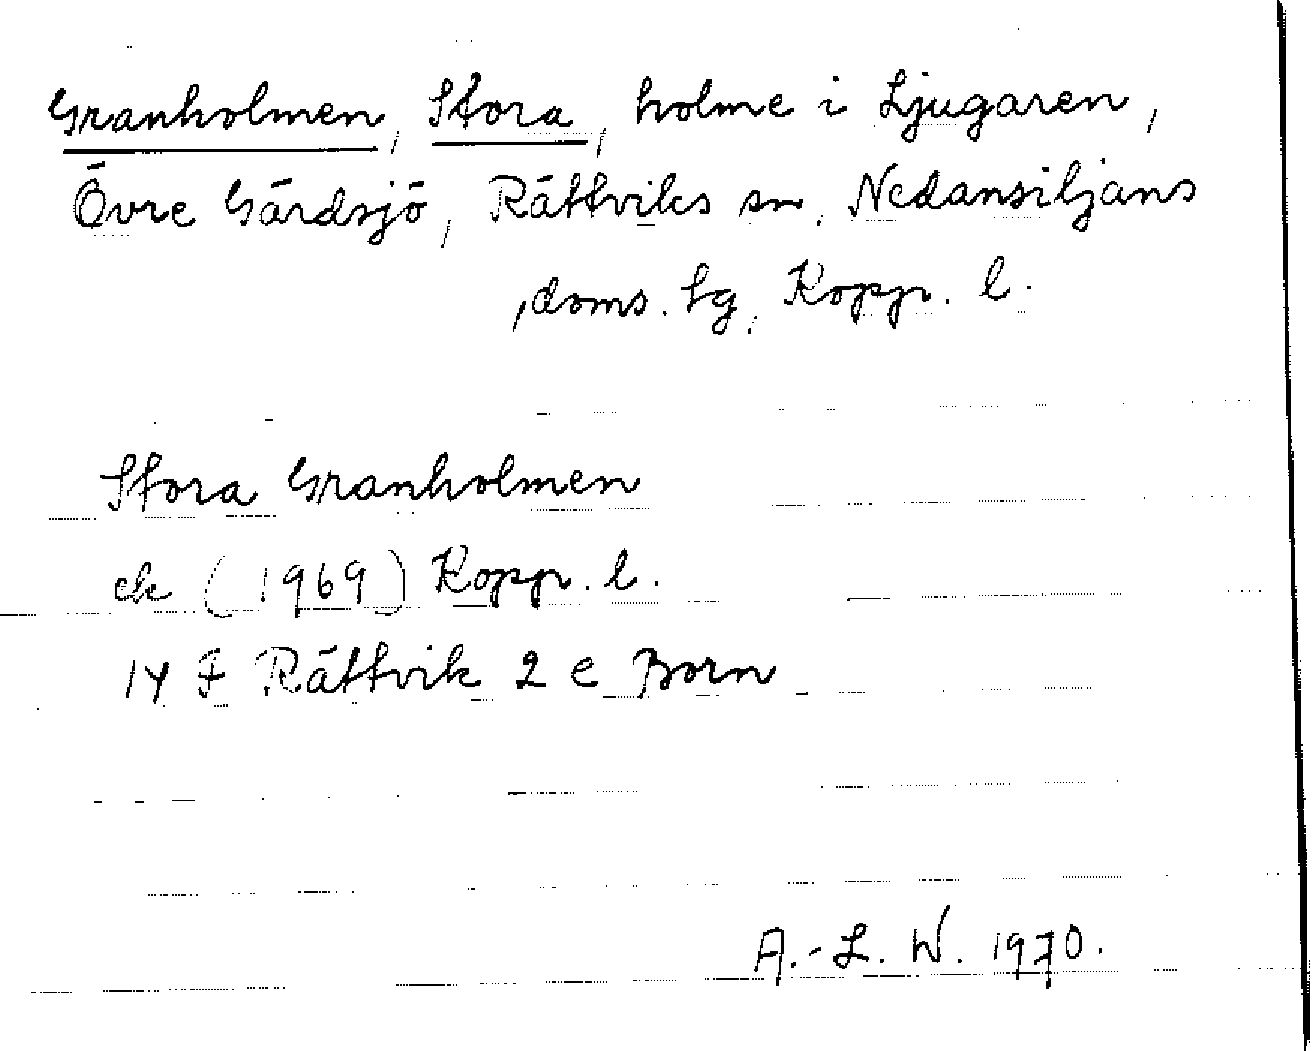 Granholmen, Stora, holme i Ljugaren,
Övre Gärdsjö, Rättviks sn, Nedansiljans
doms. tg, Kopp. l.
Stora Granholmen
ek (1969) Kopp. l.
14 F Rättvik 2 e Born
A.-L. W. 1970.